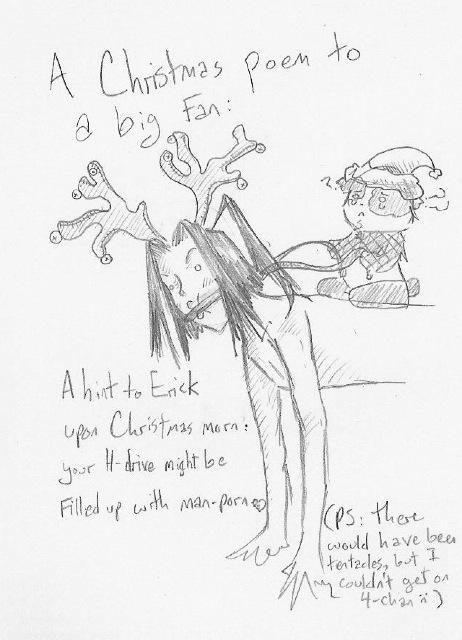 A Christmas poem to
a big Fan:
? ??
A hint to Erick
upon Christmas morn:
your H-drive might be
Filled up with man-porn
(PS: there
would have been
tentacles, but I
couldn't get on
4-chan :: )